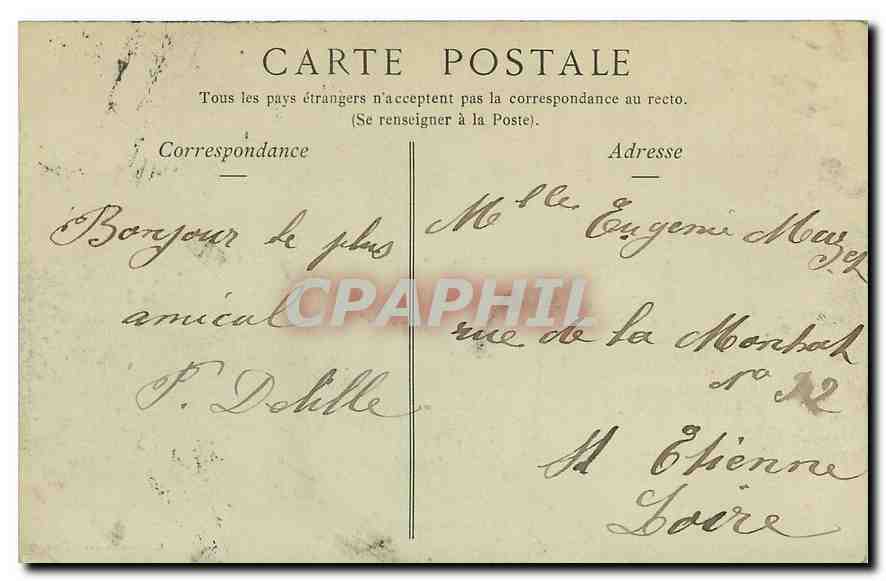 CARTE POSTALE
Tous les pays étrangers n'acceptent pas la correspondance au recto.
(Se renseigner à la Poste).
Correspondance
Bonjour le plus
amical
Delille
Adresse
Mlle Eugenie
rue de la Montat
No
St Etienne
Loire
CPAPHIL